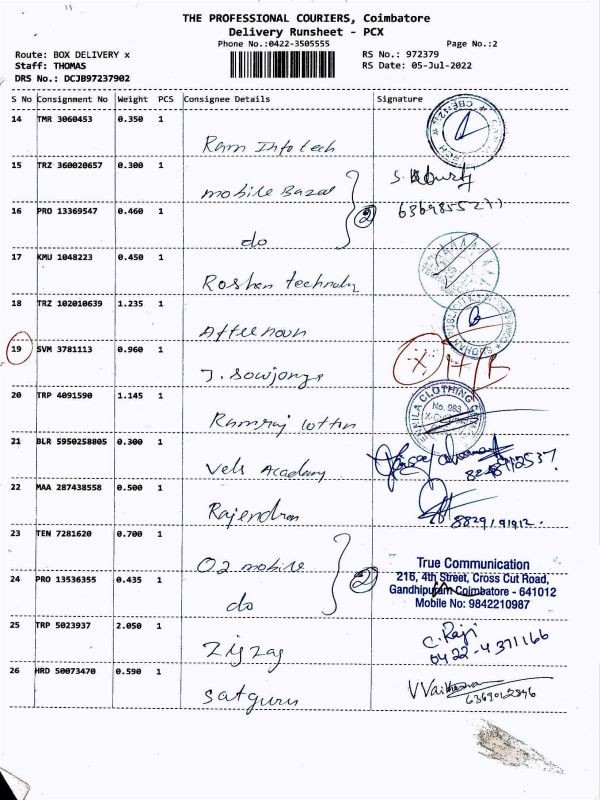 THE PROFESSIONAL COURIERS, Coimbatore
Delivery Runsheet - PCX
Phone No.:0422-3505555 Page No.:2
Route: BOX DELIVERY x RS No.: 972379
Staff: THOMAS RS Date: 05-Jul-2022
DRS No.: DCJB97237902
S No Consignment No Weight PCS Consignee Details Signature
14 TMR 3060453 0.350 1
Ram Infotech
15 TRZ 360020657 0.300 1
mobile Bazar
16 PRO 13369547 0.460 1 2
do
17 KMU 1048223 0.450 1
Roshan
18 TRZ 102010639 1.235 1
Afternoon
19 SVM 3781113 0.960 1 X
J. Sowjanya
20 TRP 4091590 1.145 1 CLOTHING
Ramraj cotton No. 983
21 BLR 5950258805 0.300 1
Vels Academy
22 MAA 287438558 0.500 1
Rajendran 8829191912.
23 TEN 7281620 0.700 1
O2 mobile True Communication
24 PRO 13536355 0.435 1 2 216, 4th Street, Cross Cut Road,
do Gandhipuram Coimbatore - 641012
Mobile No: 9842210987
25 TRP 5023937 2.050 1 C. Raji
Zigzag 0422-4371166
26 HRD 50073470 0.590 1
Satguru